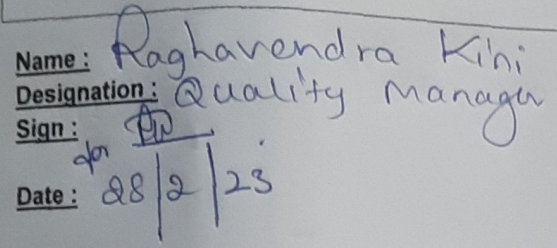 Name : Raghavendra Kini
Designation : Quality Manager
Sign :
for
Date : 28/2/23